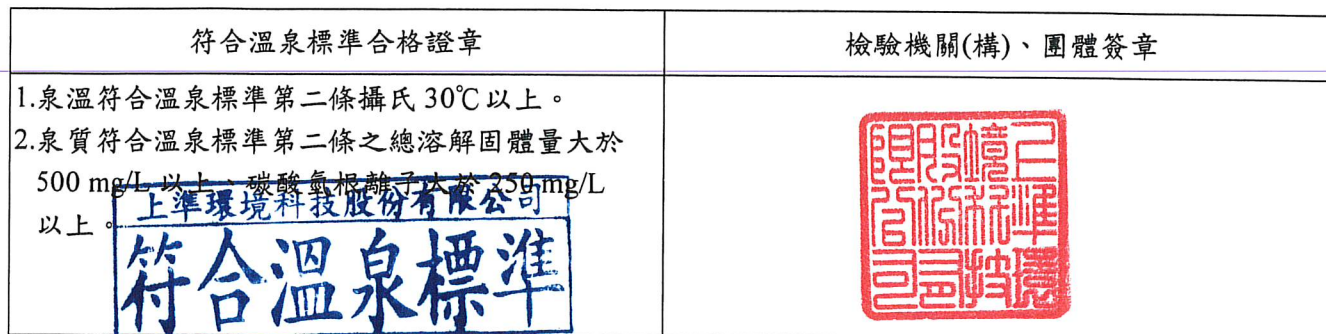 符合溫泉標準合格證章
檢驗機關(構)、團體簽章
1.泉溫符合溫泉標準第二條攝氏 30℃以上。
2.泉質符合溫泉標準第二條之總溶解固體量大於
500 mg/L 以上、碳酸氫根離子大於 250 mg/L
以上。
上準環境科技股份有限公司
符合溫泉標準
上準環境科技股份有限公司